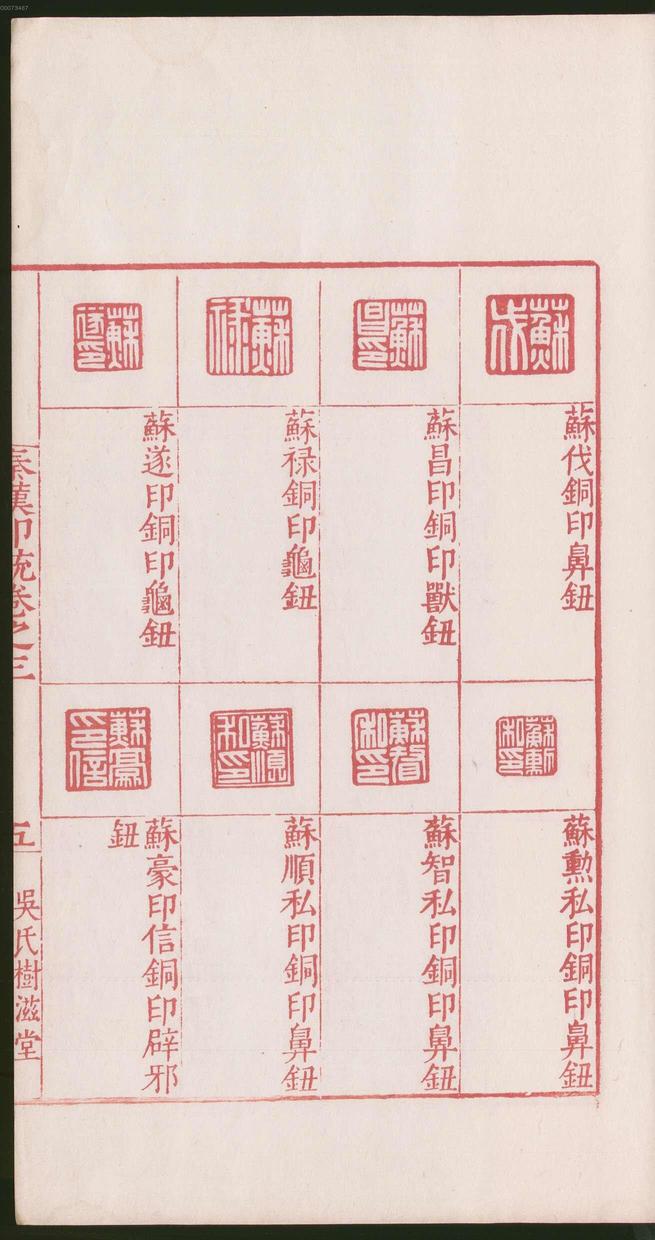 蘇伐
蘇伐銅印鼻鈕
蘇昌印
蘇昌印銅印獸鈕
蘇祿
蘇禄銅印龜鈕
蘇遂印
蘇遂印銅印龜鈕
蘇勳私印
蘇勳私印銅印鼻鈕
蘇智私印
蘇智私印銅印鼻鈕
蘇順私印
蘇順私印銅印鼻鈕
蘇豪印信
蘇豪印信銅印辟邪
鈕
秦漢印統卷之三
五
吳氏樹滋堂
00073467